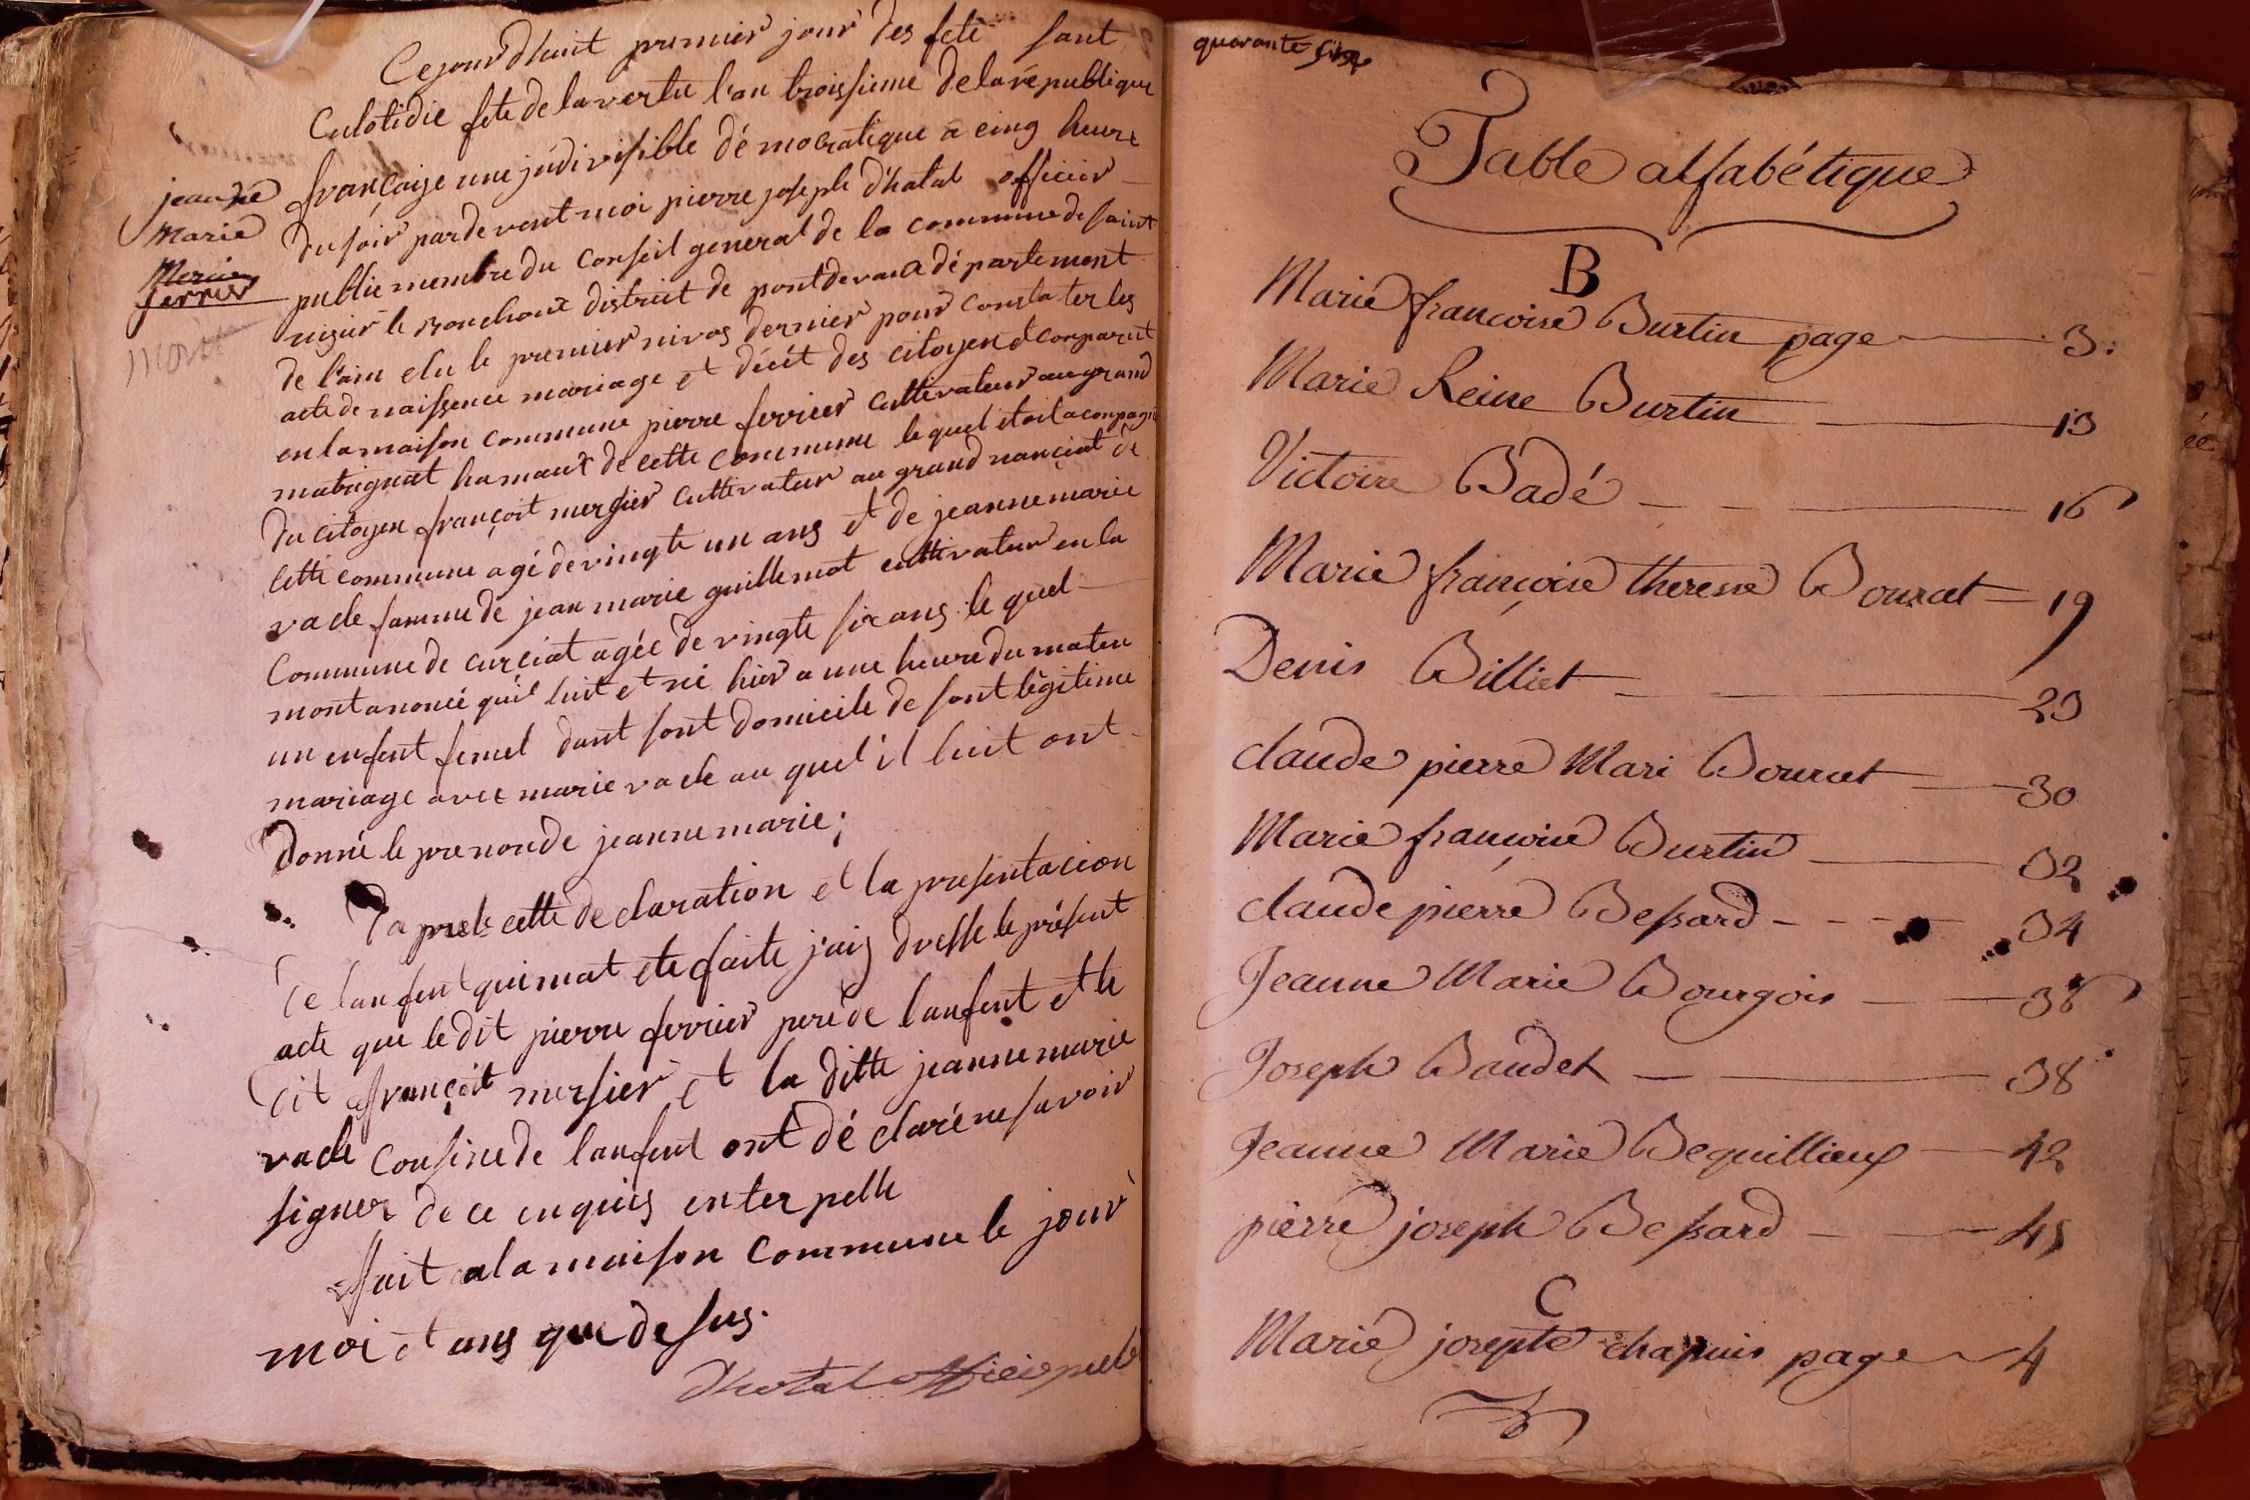 Cejourdhuit premier jour des fete sant
Culotidie fete de la vertu l'an troissieme de la republique
française une jndivisible démocratique a cinq heure
du soir par devent moi pierre joseph d'hatal officier
public membre du conseil general de la commune de saint
nisier le Bouchoux district de pont de vaux département
de l'ain elu le premier nivos dernier pour constater les
acte de naissence mariage et décét des citoyen et conparut
en la maison commune pierre ferrier cultivateur au grand
matrignat hamaux de cette commune le quel etoit aconpagné
du citoyen françoit mersier cultivateur au grand nanciat de
cette commune agé de vingte un ans et de jeanne marie
vacle famme de jean marie guillemot cultivateur en la
commune de curciat agée de vingte six ans le quel
mont anoncé quil luit et né hier a une heure du maten
un enfent femel dant sont domicile de sont légitime
mariage avec marie vacle au quel il luit ont
donné le prenon de jeanne marie;
Daprels cette declaration et la presentacion
de lanfent qui mat ete faite j'ais dresse le présent
acte que le dit pierre ferrier pere de lanfent et le
dit françoit mersier et la ditte jeanne marie
vacle cousine de lanfent ont dé claré ne savoir
signer de ce enquis enter pelle
fait a la maison commune le jour
moi et ans que desus.
Dhatal officié publi
jeanne
Marie
Mercier
ferrier
mort
quarante six
Table alfabétique
B
Marie françoise Burtin page 3:
Marie Reine Burtin 13
Victoire Badé 16
Marie françoise therese Bourcet 19
Denis Billiet 23
claude pierre Mari Bourcet 30
Marie françoise Burtin 32
claude pierre Bessard 34
Jeanne Marie Bourgois 36
Joseph Baudet 38
Jeanne Marie Bequillieux 42
pierre joseph Bessard 45
C
Marie josephte chapuis page 4